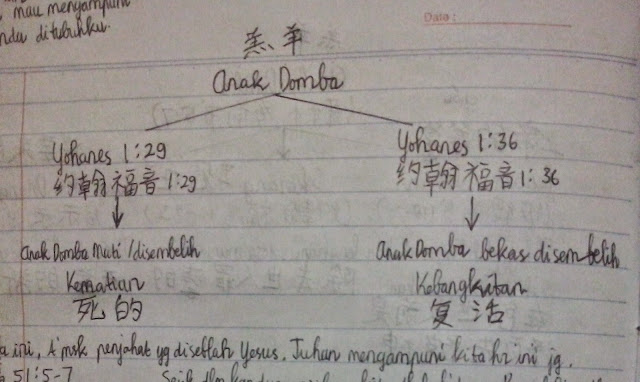 mau mengampuni
ditubuhku.
Date:
羔羊
Anak Domba
Yohanes 1:29
约翰福音 1:29
Anak Domba Mati /disembelih
Kematian
死的
Yohanes 1:36
约翰福音 1:36
Anak Domba bekas disembelih
Kebangkitan
复活
ini, A'msk penjahat yg diseblah Yesus. Tuhan mengampuni kita hr ini jg.
51:5-7